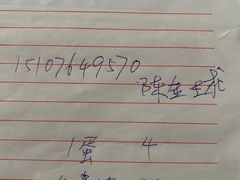 15107649570
陈金球
1蛋 4